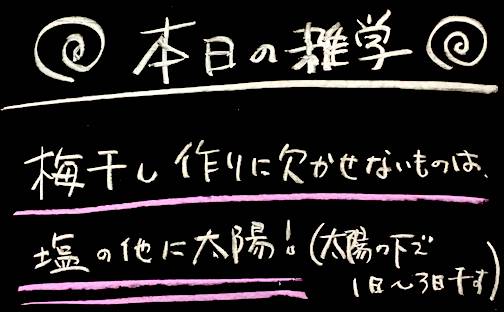 本日の雑学
梅干し作りに欠かせないものは、
塩の他に太陽!(太陽の下で
1日〜3日干す)